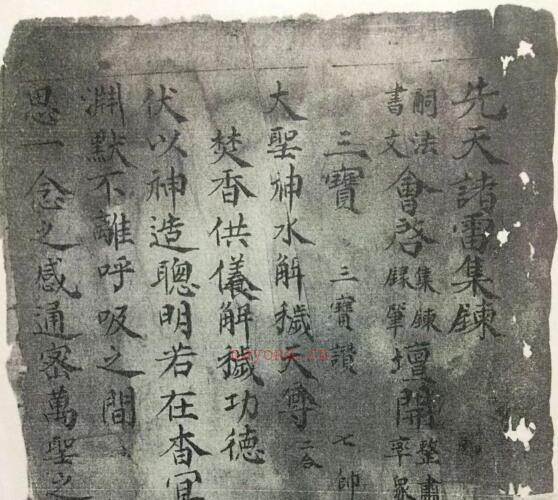 先天諸雷集鍊
嗣法 集鍊 整肅
書文 會啓 錄筆 壇開 率眾
三寶 三寶讚 七帥
大聖神水解穢天尊 二合
焚香供儀解穢功德
伏以神造聰明若在杳冥
淵默不離呼吸之間
思一念之感通密萬聖之